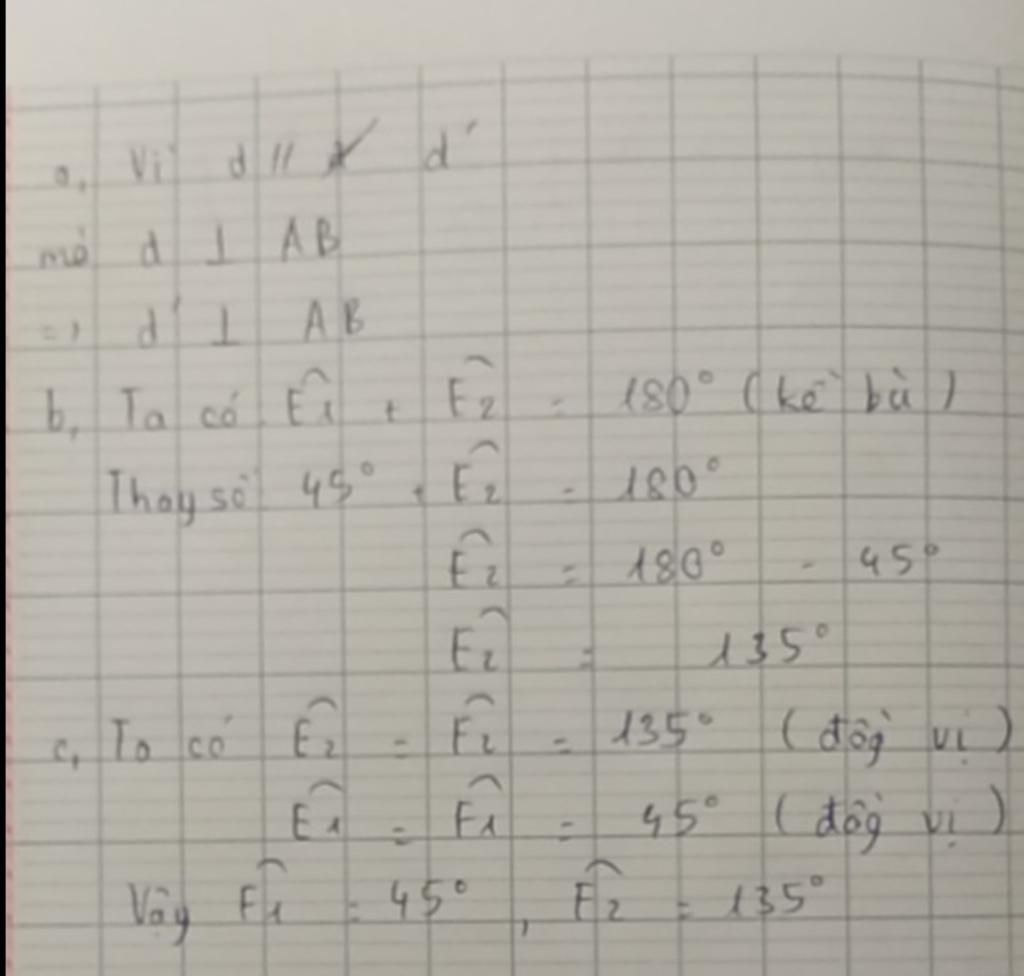 a, Vì d // d'
mà d ⊥ AB
=> d' ⊥ AB
b, Ta có Ê1 + Ê2 = 180° (kề bù)
Thay số 45° + Ê2 = 180°
Ê2 = 180° - 45°
Ê2 = 135°
c, Ta có Ê2 = F̂2 = 135° (đồg vị)
Ê1 = F̂1 = 45° (đồg vị)
Vậy F̂1 = 45°, F̂2 = 135°